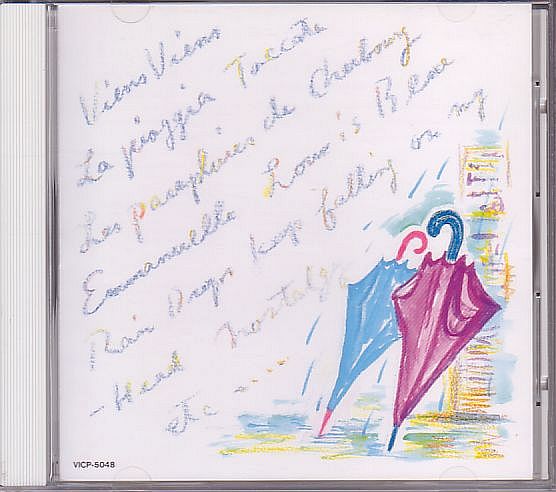 Viens Viens
La pioggia Toccata
Les parapluies de Cherbourg
Emmanuelle Love is Blue
Rain Drops keep falling on my
- Head Nostalgy
etc ----
VICP-5048